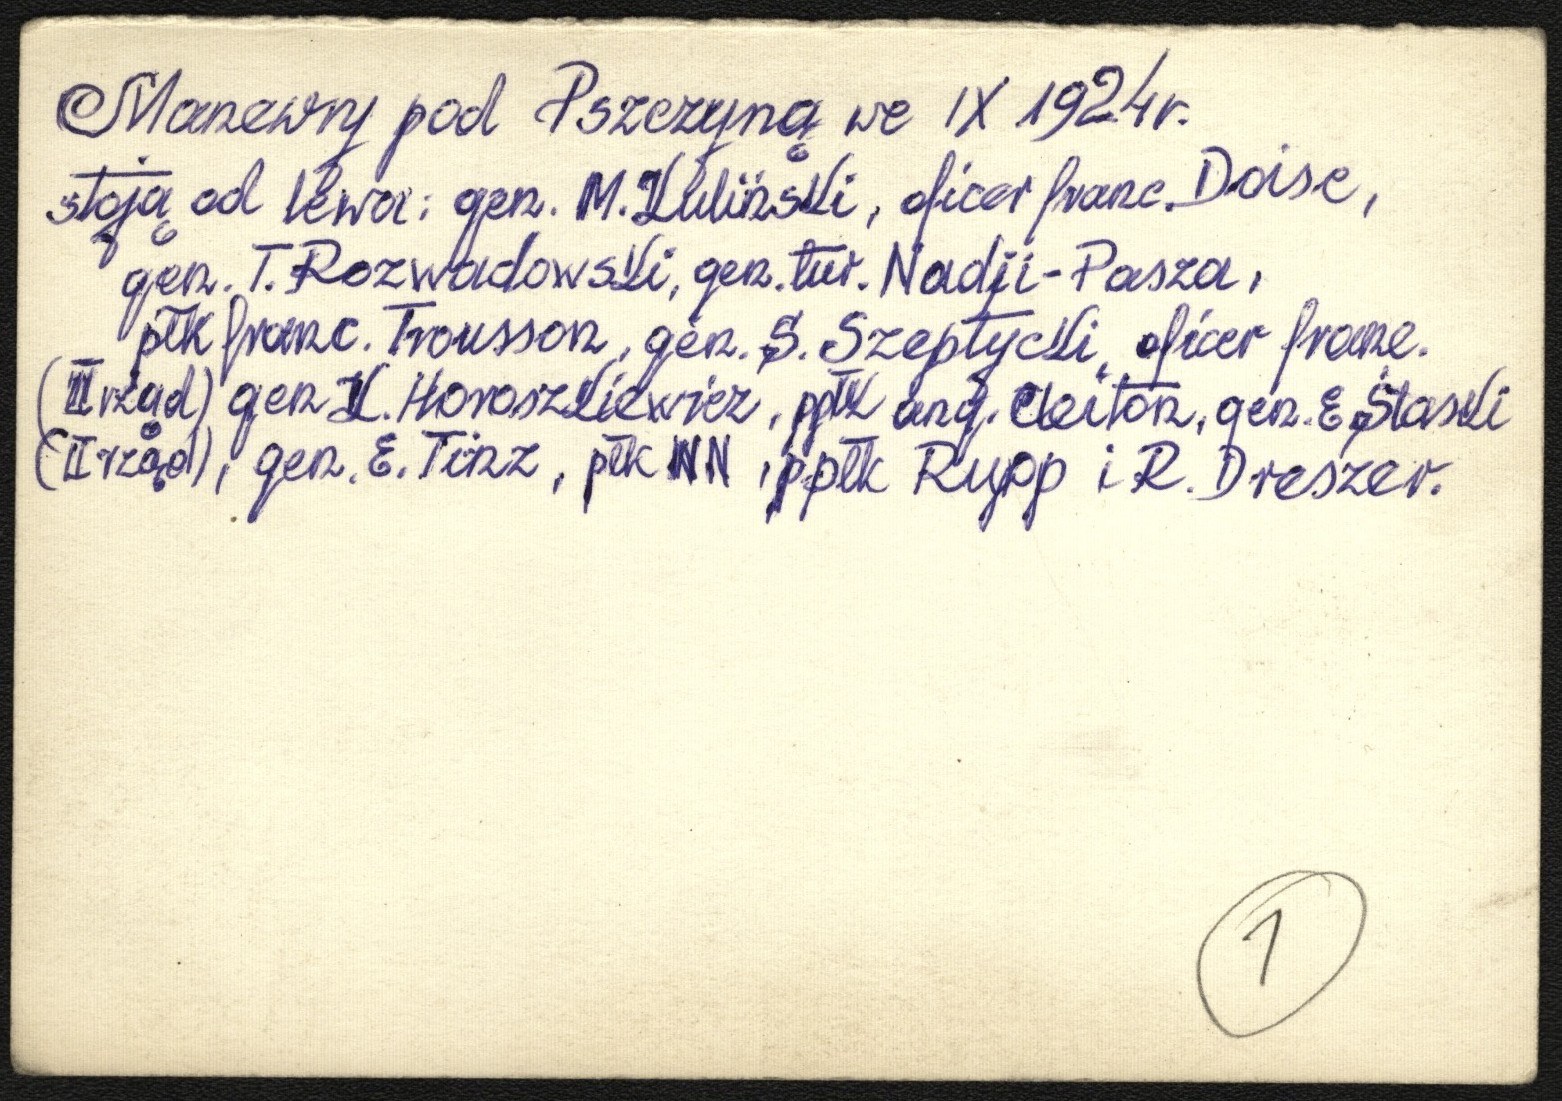 Manewry pod Pszczyną we IX 1924r.
stoją od lewa: gen. M. Kuliński, oficer franc. Doise,
gen. T. Rozwadowski, gen. tur. Nadji-Pasza,
płk franc. Trousson, gen. S. Szeptycki, oficer franc.
(II rząd) gen K. Horoszkiewicz, ppłk ang. Cleiton, gen. E Staski
(II rząd), gen. E. Tinz, płk NN, ppłk Rupp i R. Dreszer.
1